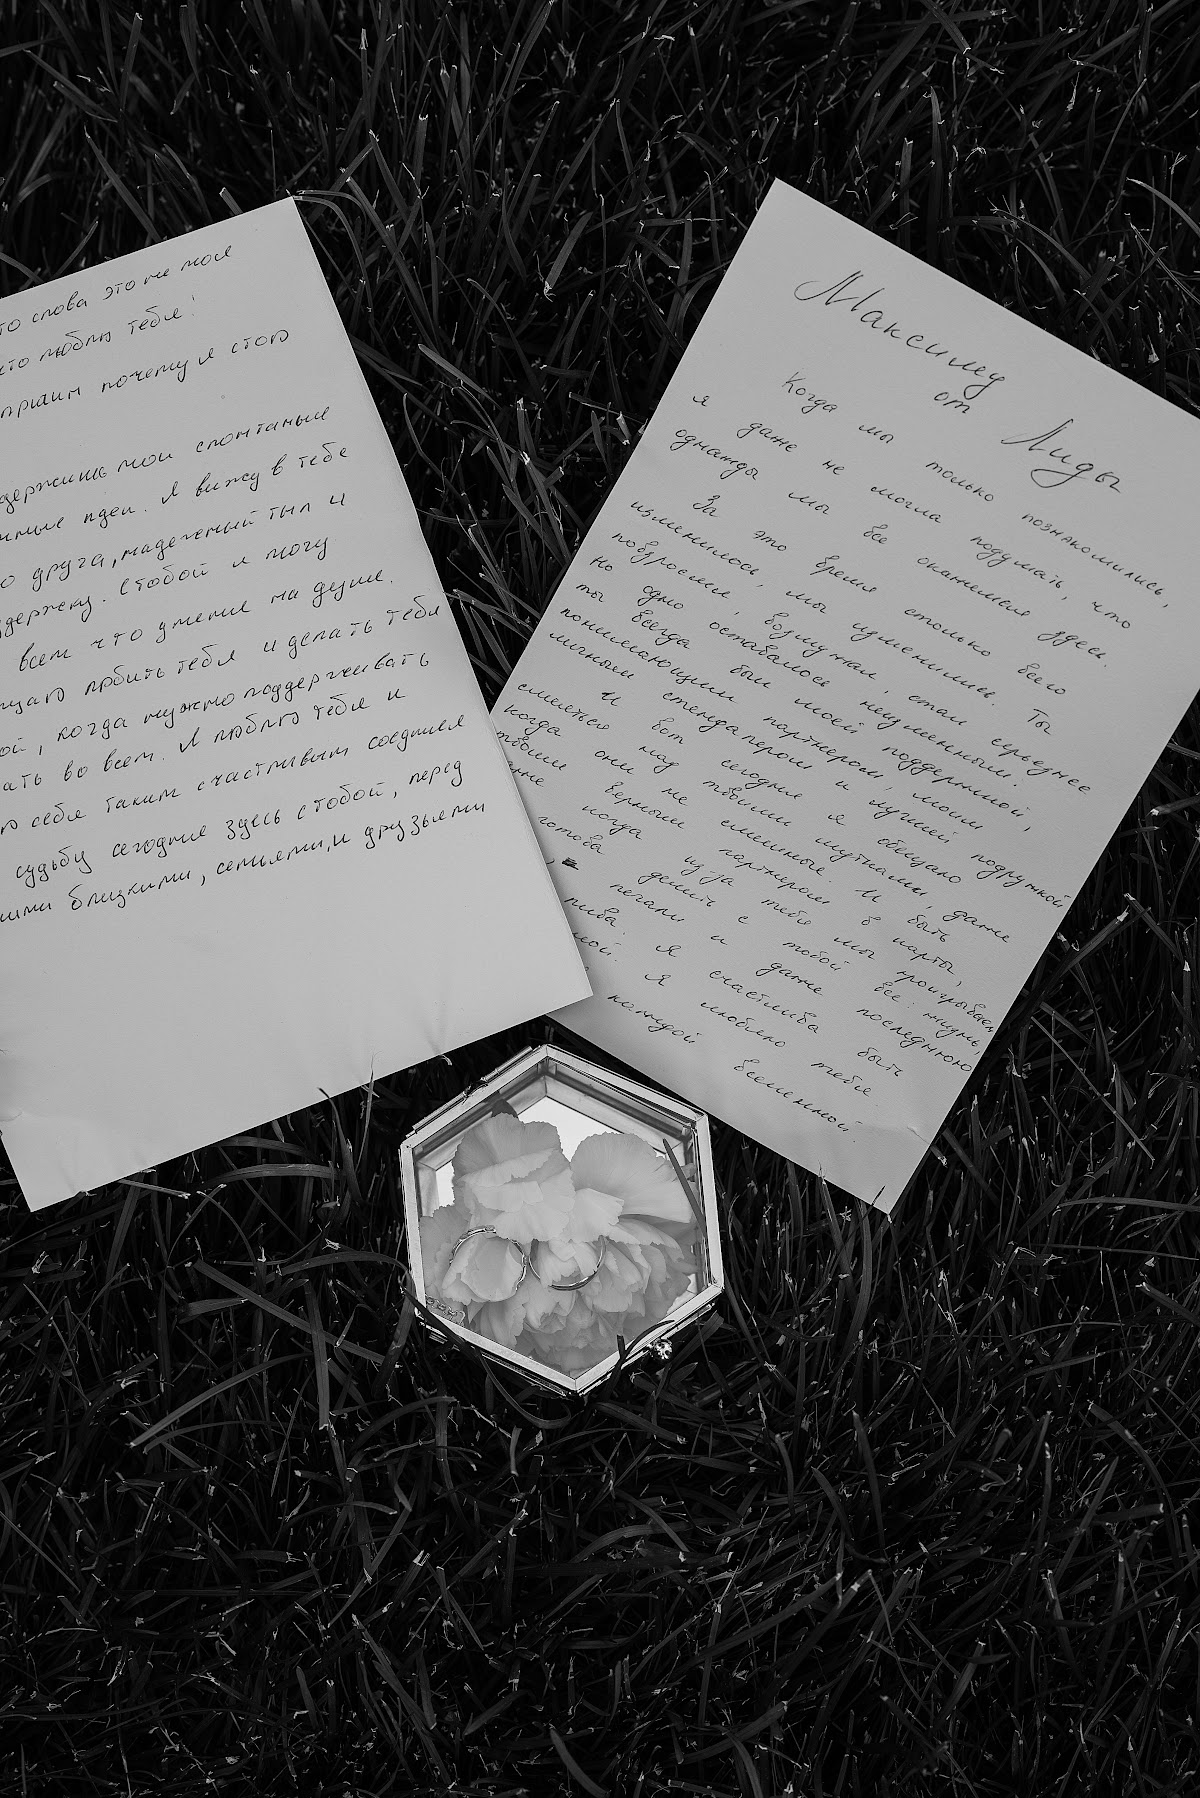 то слова это не мое
что люблю тебя!
почему я стою
мои спонтаные
идеи. Я вижу в тебе
друга, надёжный тыл и
с тобой я могу
всем что у меня на душе.
любить тебя и делать тебя
ой, когда нужно поддерживать
ать во всем. Я люблю тебя и
себя таким счастливым соединяя
судьбу сегодня здесь с тобой, перед
близкими, семьями, и друзьями
Максиму
от Лиды
Когда мы только познакомились,
я даже не могла подумать, что
однажды мы все окажемся здесь.
За это время столько всего
изменилось, мы изменились. Ты
повзрослел, возмужал, стал серьезнее
но одно оставалось неизменным:
ты всегда был моей поддержкой,
понимающим партнером, моим
личным стендапером и лучшей подружкой
И вот сегодня я обещаю
смеяться над твоими шутками, даже
когда они не смешные. И быть
твоим верным партнером в карты,
даже когда из-за тебя мы проигрываем
готова делить с тобой все: жизнь,
печали и даже последнюю
пива. Я счастлива быть
Я люблю тебя
каждой вселенной.